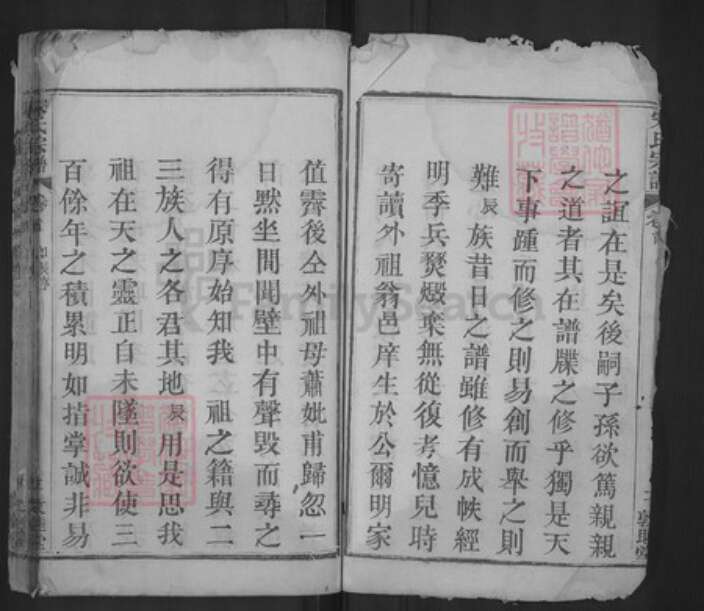 之誼在是矣後嗣子孫欲篤親親
之道者其在譜牒之修乎獨是天
下事踵而修之則易創而舉之則
難辰族昔日之譜雖修有成帙經
明季兵燹燬棄無從復考憶兒時
寄讀外祖翁邑庠生於公爾明家
值霽後仝外祖母蕭妣甫歸忽一
日黙坐間聞壁中有聲毀而尋之
得有原序始知我 祖之籍與二
三族人之各君其地辰用是思我
祖在天之靈正自未墜則欲使三
百餘年之積累明如指掌誠非易
FamilySearch